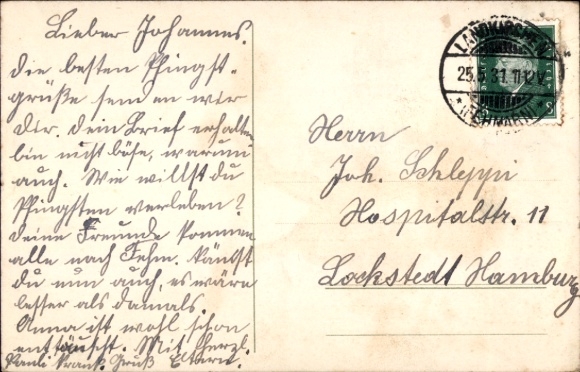 Lieber Johannes.
Die besten Pfingst-
grüße senden wir
Dir. Dein Brief erhalten
bin nicht böse, warum
auch. Wie willst du
Pfingsten verleben?
Deine Freunde kommen
alle nach Fehm. kämst
du nun auch, es wäre
besser als damals.
Anna ist wohl schon
enttäuscht. Mit herzl.
Pauli krank. Gruß Eltern.
LANDKIRCHEN
25.5.31. 11-12V
* (FEHMARN) *
8
Herrn
Joh. Schleppi
Hospitalstr. 11
Lockstedt Hamburg